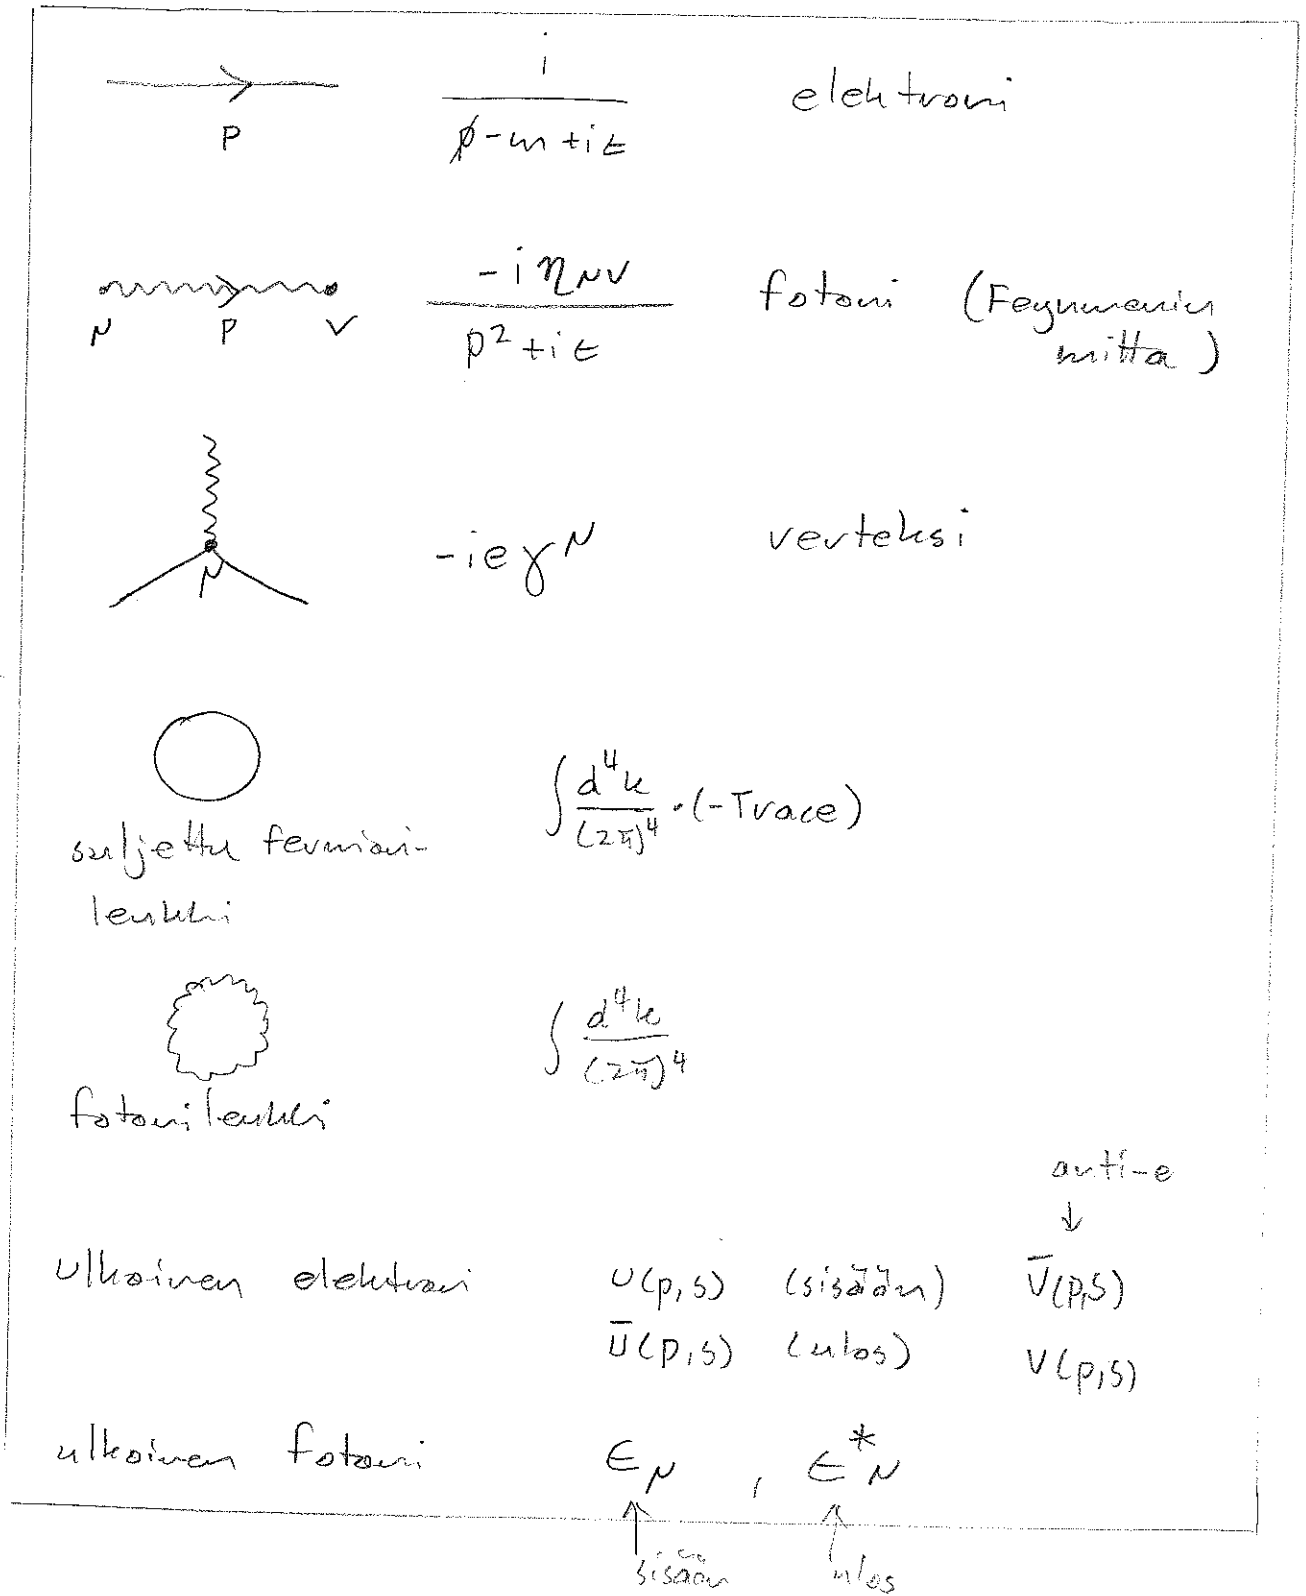 p i/(p̸-m+iε) elektroni
μ p ν -iη_μν/(p²+iε) fotoni (Feynmanin
mitta)
μ -ieγ^μ verteksi
∫ d⁴k/(2π)⁴ · (-Trace)
suljettu fermioni-
leukki
∫ d⁴k/(2π)⁴
fotonileukki
anti-e
↓
ulkoinen elektroni u(p,s) (sisään) v̄(p,s)
ū(p,s) (ulos) v(p,s)
ulkoinen fotoni ε_μ , ε*_μ
↑ ↑
sisään ulos